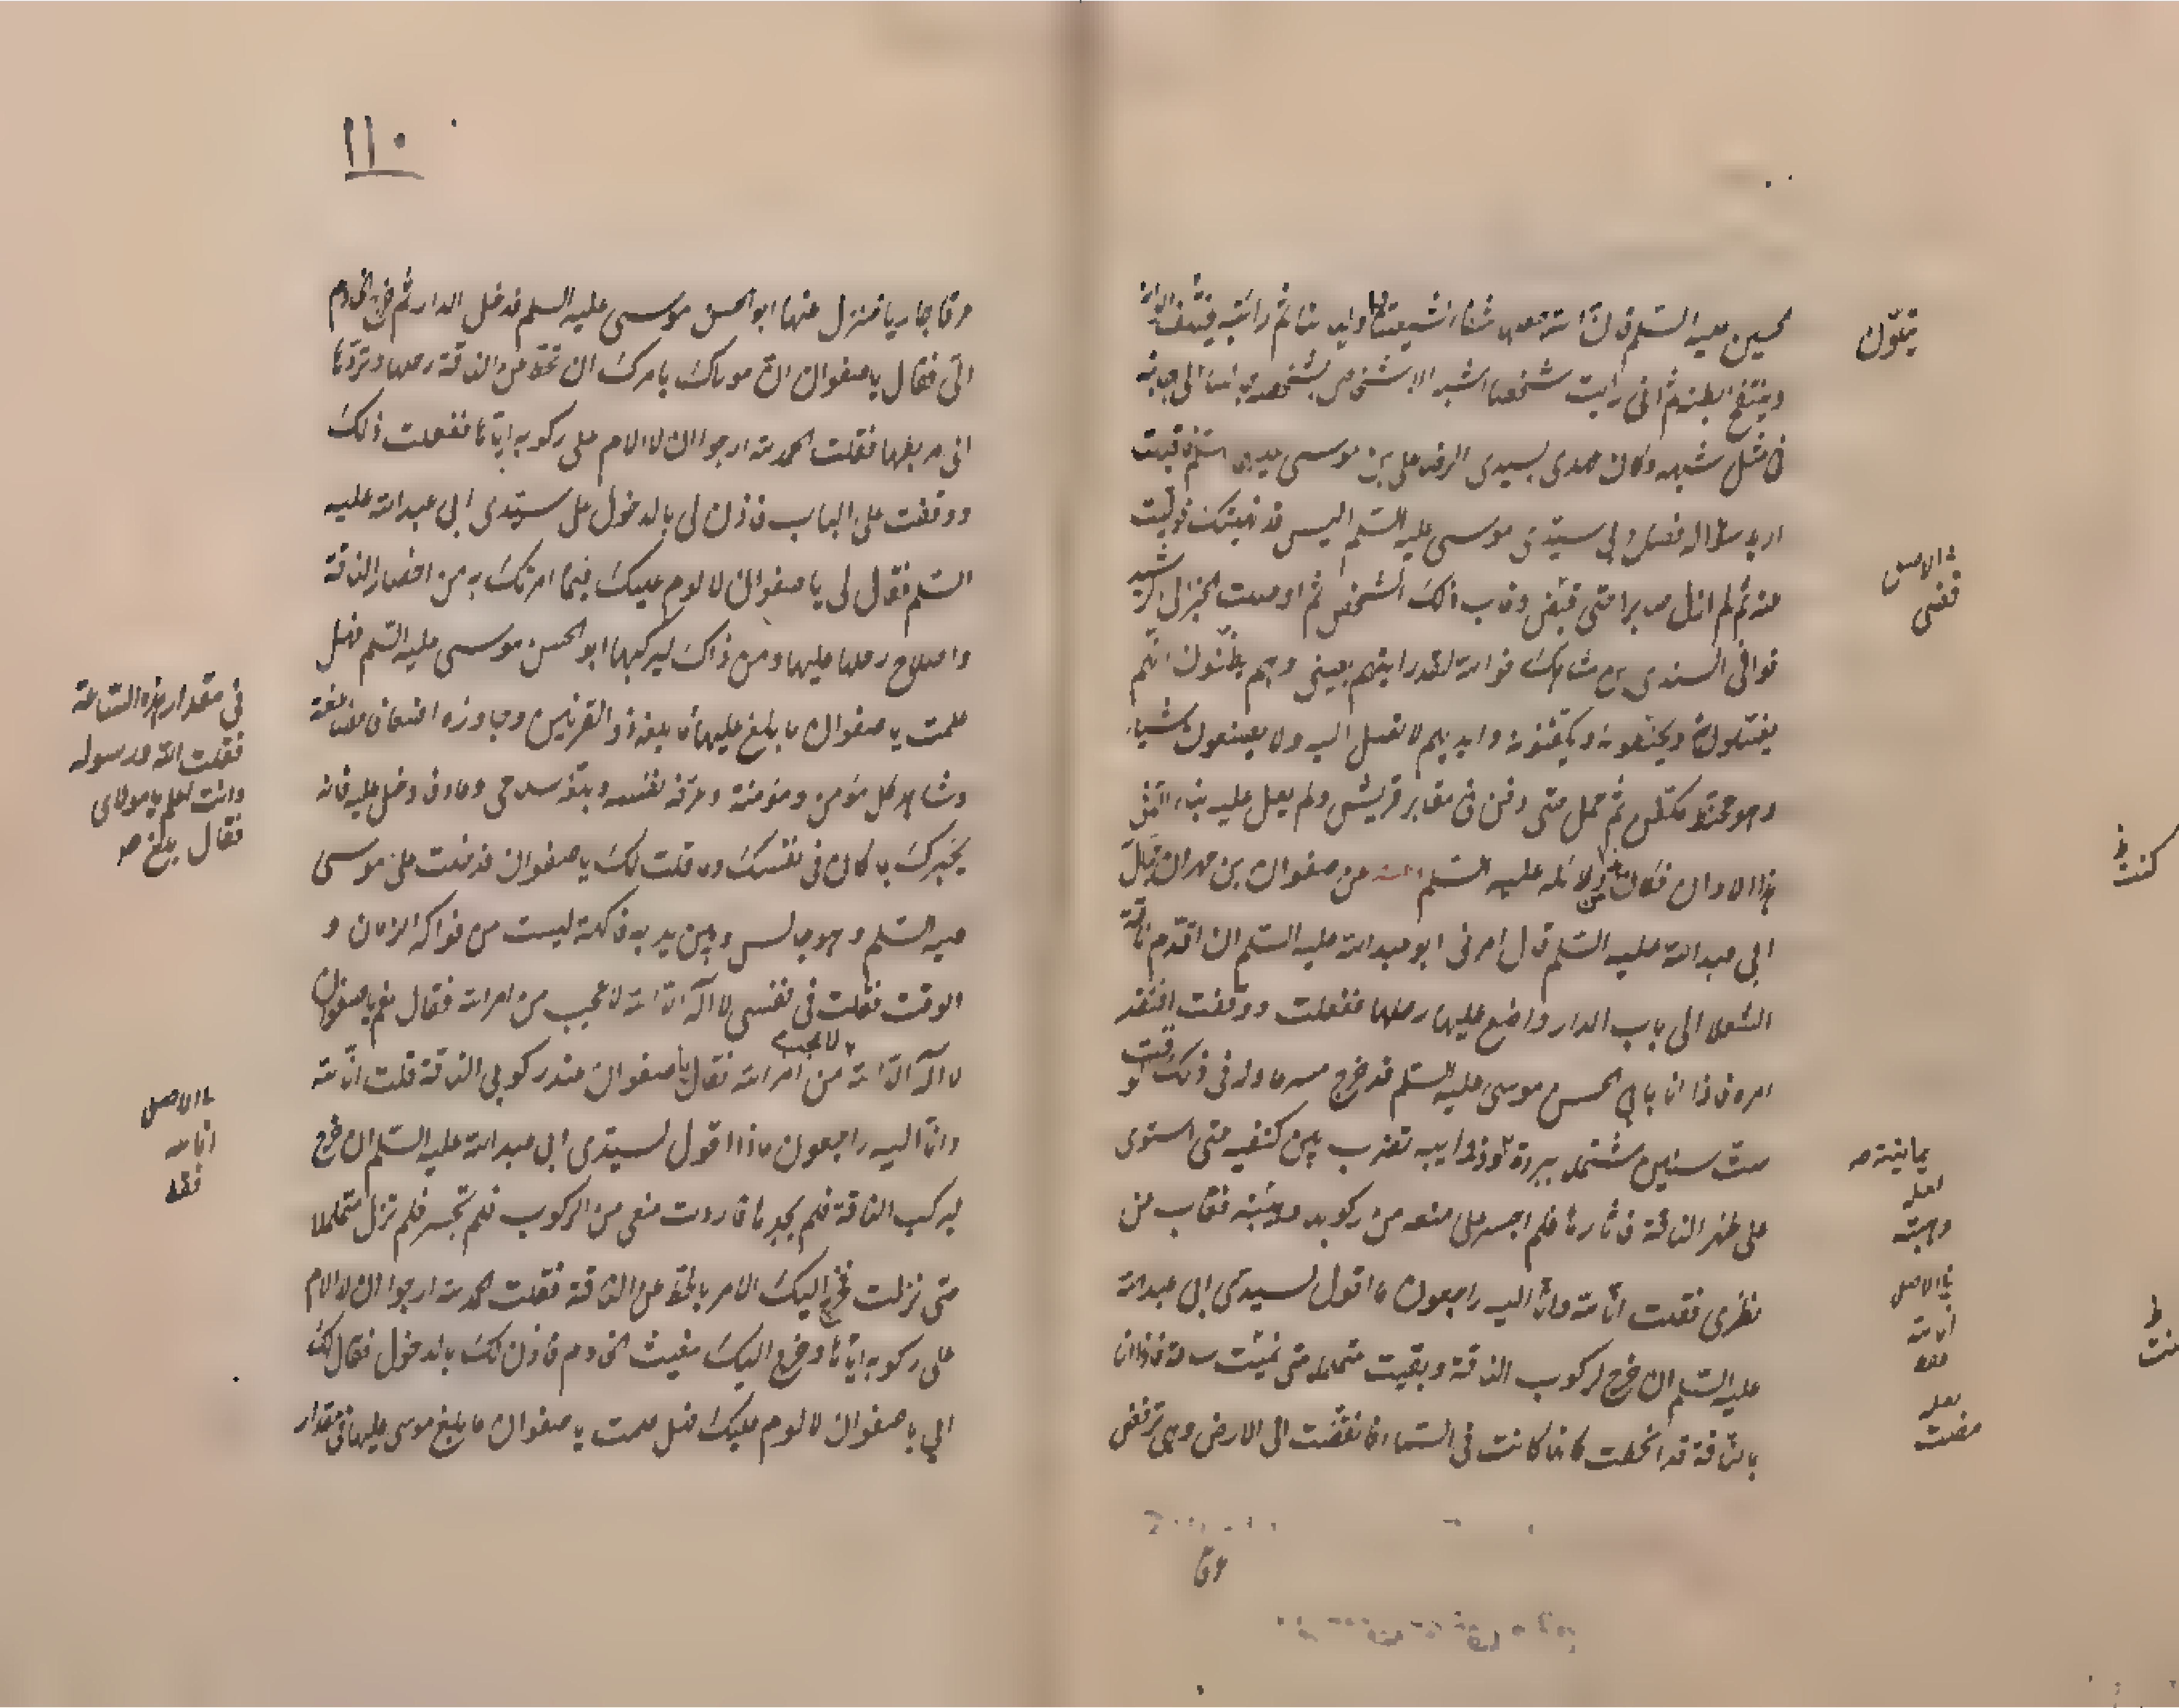 الحسين عليه السلم قال
وينتفخ بطنه ثم اني رايت شخصا اشبه الاشخاص بشخصه جالسا الى جانبه
في مثل شبهه وكان عهدى بسيدى الرضا على بن موسى عليه السلم فاقبلت
اريد سؤاله فصاح بي سيدى موسى عليه السلم اليس قد نهيتك فوليت
عنه ثم لم ازل صابرا حتى قبض وغاب ذلك الشخص ثم اوصلت الخبر الى الرشيد
فوافى السندى بن شاهك فوالله لقد رايتهم بعيني وهم يظنون انهم
يغسلونه ويحنطونه ويكفنونه وايديهم لا تصل اليه ولا يصنعون شيئا
وهو محنط مكفن ثم حمل حتى دفن في مقابر قريش ولم يعل عليه بناء الى
هذا الاوان فكان من دلائله عليه السلم وعنه عن صفوان بن مهران جمال
ابي عبد الله عليه السلم قال امرنى ابو عبد الله عليه السلم ان اقدم ناقته
الشعلا الى باب الدار واضع عليها رحلها ففعلت ووقفت افتقد
امره فاذا انا بابى الحسن موسى عليه السلم قد خرج مسرعا وله في ذلك الوقت
ست سنين مشتمل ببردة وذوابيه تضرب بين كتفيه حتى استوى
على ظهر الناقة فاثارها فلم اجسر على منعه من ركوبه فغاب عن
نظرى فقلت انا لله وانا اليه راجعون ما اقول لسيدى ابى عبد الله
عليه السلم ان خرج لركوب الناقة وبقيت متململا حتى ساعة فاذا انا
بالناقة قد انحطت كانها كانت في السماء فانقضت الى الارض وهي ترفض
عرقا
يتلون
في الاصل
قضى
يمانية صح
لعله
وهيبته
في الاصل
انا لله
فقط
لعله
مضت
١١٠
عرقا جاريا فنزل عنها ابو الحسن موسى عليه السلم فدخل الدار ثم خرج الخادم
الي فقال يا صفوان ان مولاك يامرك ان تحط عن الناقة رحلها وتردها
الى مربطها فقلت الحمد لله ارجو ان لا الام على ركوبه اياها ففعلت ذلك
ووقفت على الباب فاذن لى بالدخول على سيدى ابى عبد الله عليه
السلم فقال لى يا صفوان لا لوم عليك فيما امرتك به من احضار الناقة
واصلاح رحلها عليها ومن ذاك ليركبها ابو الحسن موسى عليه السلم فهل
علمت يا صفوان ما بلغ عليها ما بلغه ذو القرنين وجاوزه اضعافا مضاعفة
وشاهد كل مؤمن ومؤمنة وعرفه نفسه وبلغه سلامى وعاد فادخل عليه فانه
يخبرك بما كان في نفسك وما قلت لك يا صفوان فدخلت على موسى
عليه السلم وهو جالس وبين يديه فاكهة ليست من فواكه الزمان و
الوقت فقلت في نفسى لا اله الا الله لا عجب من امر الله فقال نعم يا صفوان
لا اله الا الله لا عجب من امر الله فقال يا صفوان عند ركوبى الناقة قلت انا لله
وانا اليه راجعون ماذا اقول لسيدى ابى عبد الله عليه السلم ان خرج
ليركب الناقة فلم يجدها فاردت منعى من الركوب فلم تجسر فلم تزل متململا
حتى نزلت فخرج اليك الامر بالحط عن الناقة فقلت الحمد لله ارجو ان لا الام
على ركوبه اياها وخرج اليك مغيث الخادم فاذن لك بالدخول فقال لك
ابى يا صفوان لا لوم عليك فهل علمت يا صفوان ما بلغ موسى عليها في مقدار
في مقدار هذه الساعة
فقلت الله ورسوله
وانت اعلم يا مولاى
فقال بلغ صح
في الاصل
انا لله
فقط